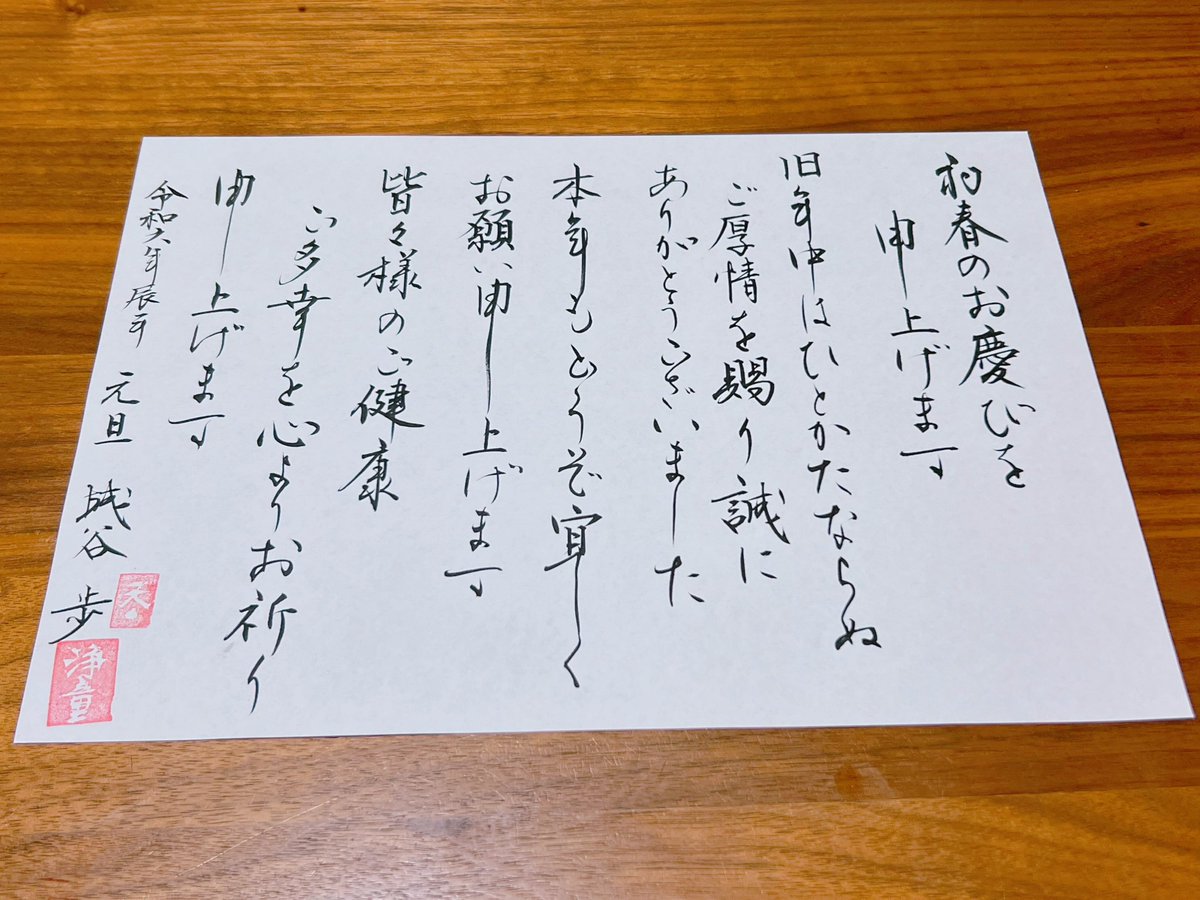 初春のお慶びを
申し上げます
旧年中はひとかたならぬ
ご厚情を賜り誠に
ありがとうございました
本年もどうぞ宜しく
お願い申し上げます
皆々様のご健康
ご多幸を心よりお祈り
申し上げます
令和六年辰年
元旦 城谷 歩